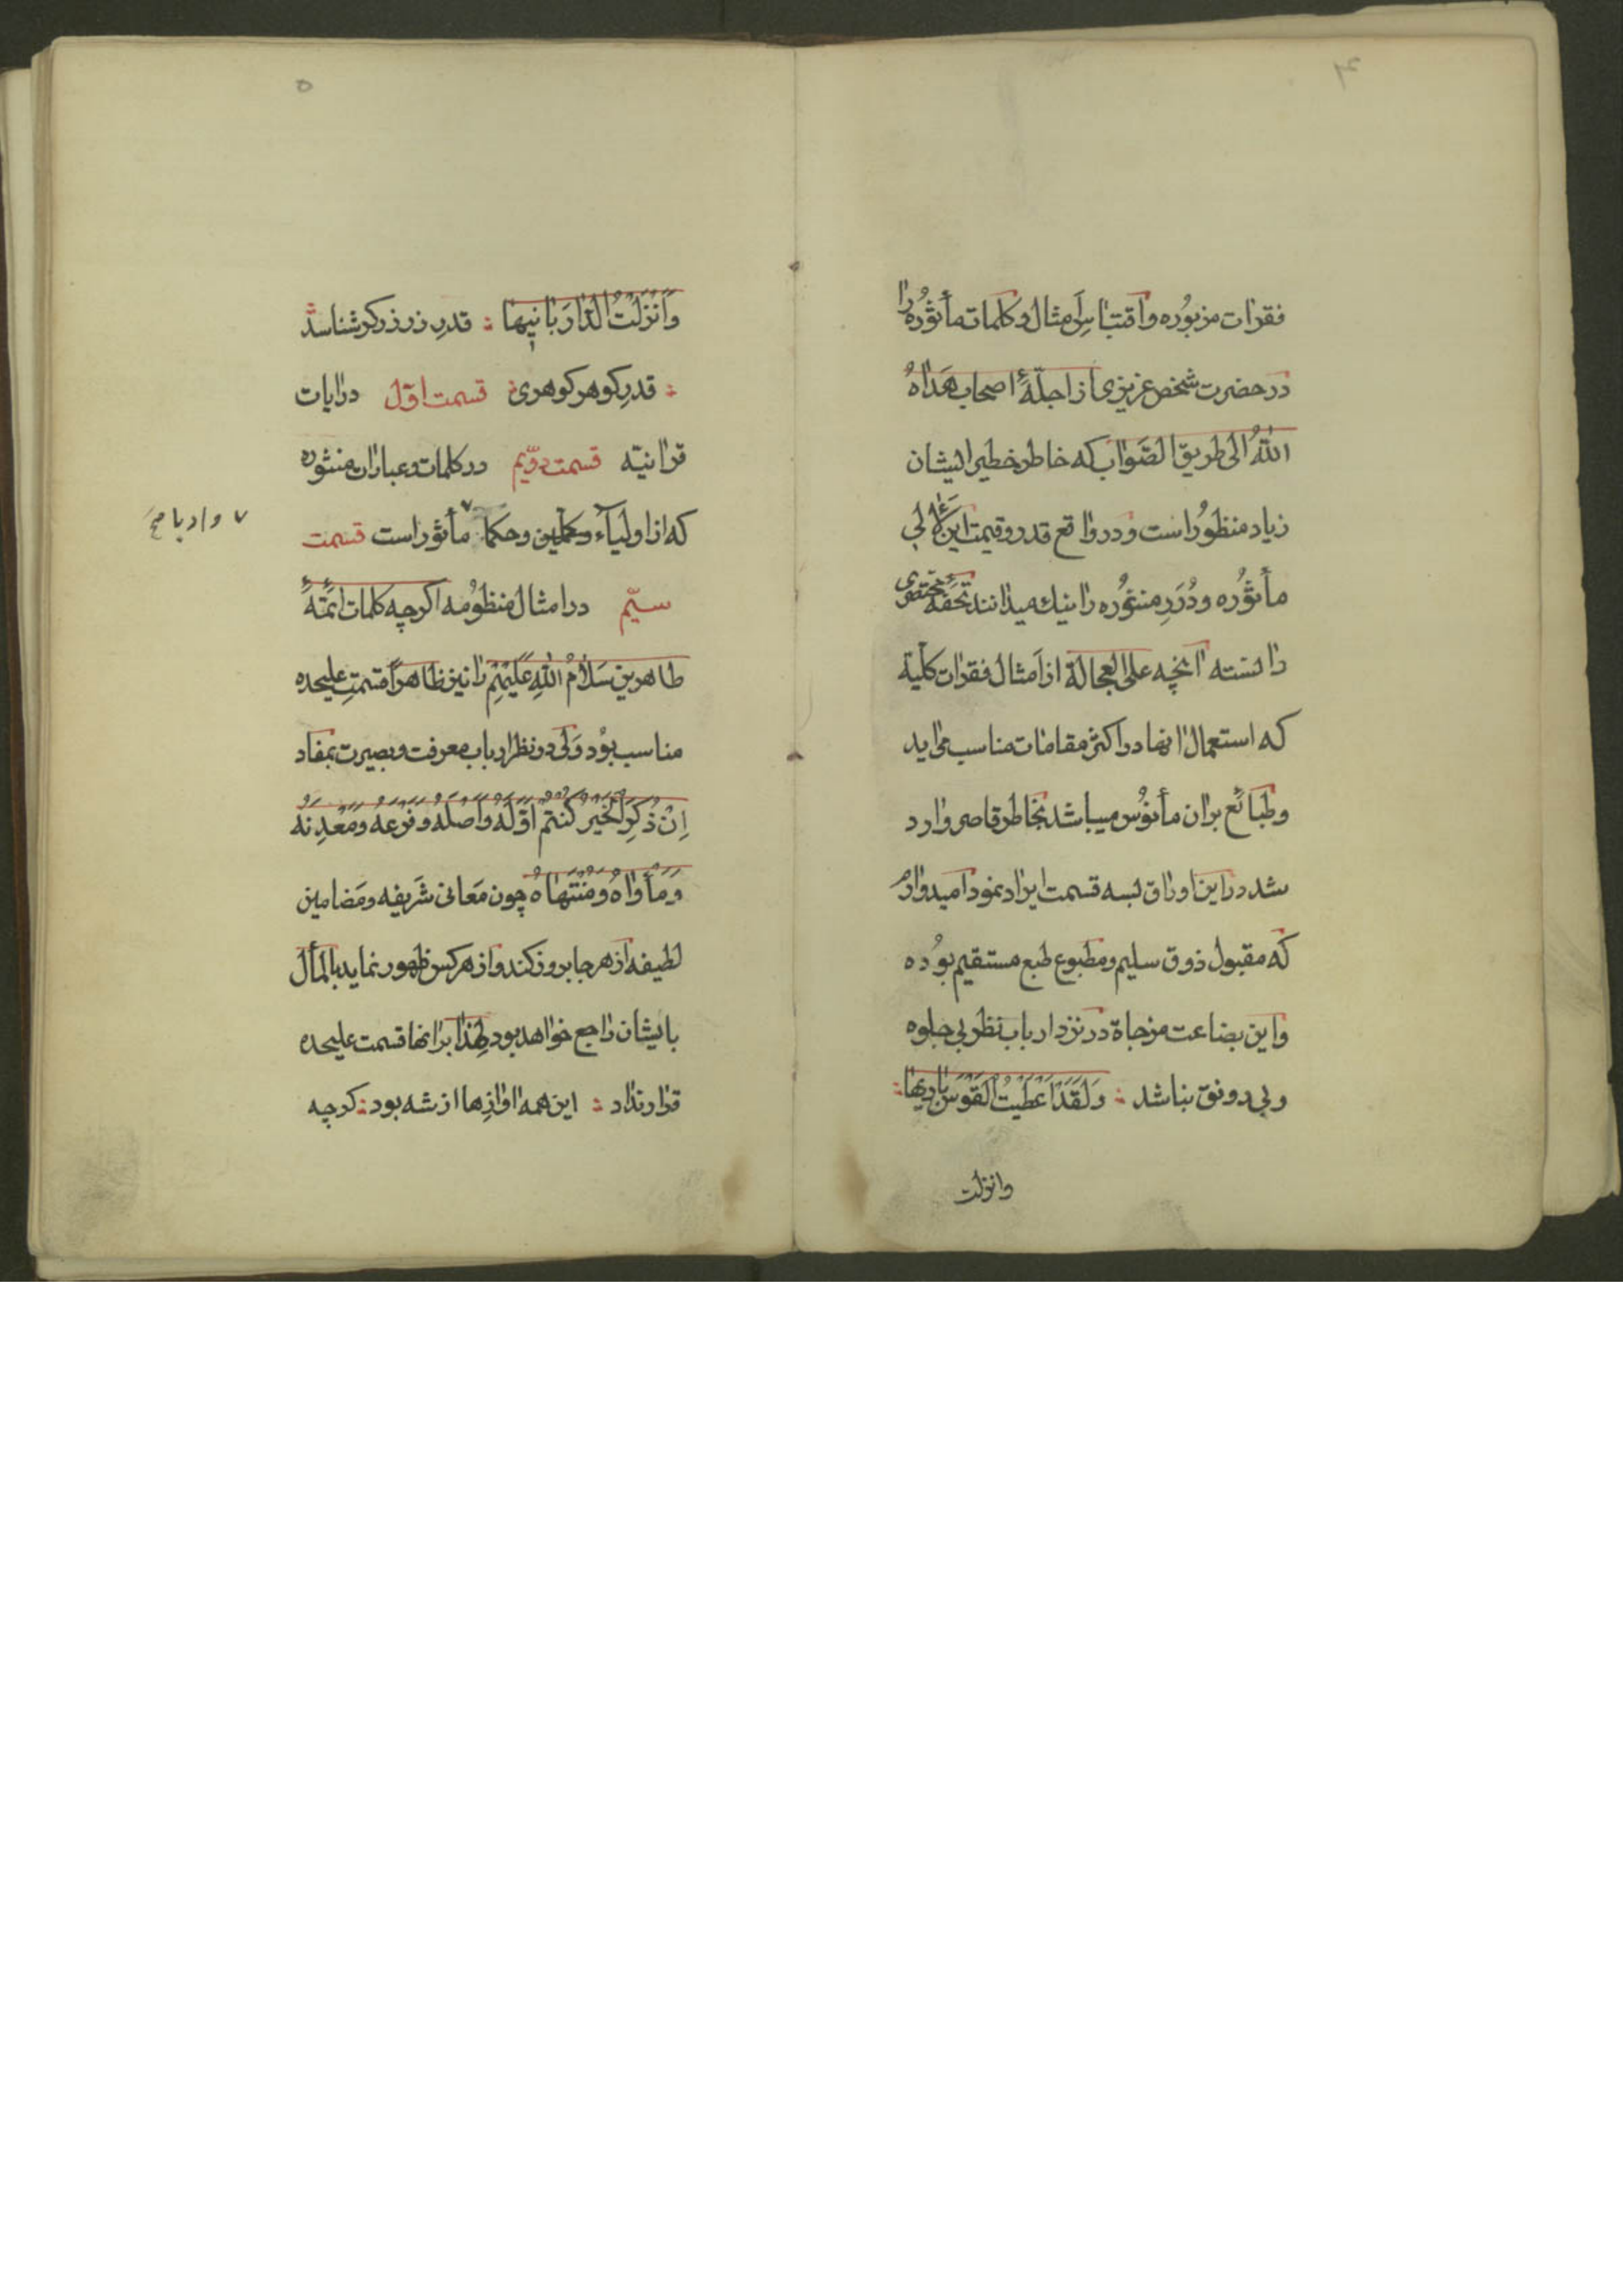 ۴
فقرات مزبوره و اقتباس أمثال و كلمات مأثوره را
در حضرت شخص عزيزى از اجلّۀ اصحاب هداه
اللهُ الى طريق الصّواب كه خاطر خطير ايشان
زياد منظور است و در واقع قدر و قيمت اين لآلى
مأثوره و دُرَرِ منثوره را نيك ميدانند تحفۀ مختصرى
دانسته انچه على العجالة از امثال فقرات كليّه
كه استعمال انها در اكثر مقامات مناسب مى ايد
و طبائع بران مأنوس ميباشد بخاطر قاصر وارد
شد در اين اوراق بسه قسمت ايراد نمود اميدوارم
كه مقبول ذوق سليم و مطبوع طبع مستقيم بوده
و اين بضاعت مزجاة در نزد ارباب نظر بى جلوه
و بى رونق نباشد : وَلَقَدْ اَعْطَيْتُ القَوْسَ بَاريها :
وانزلت
۵
وَاَنْزَلْتُ الدّارَ بَانيها : قدرِ زر زركر شناسد
: قدرِ كوهر كوهرى : قسمت اوّل در ايات
قرانيّه قسمت دوّيم در كلمات و عبارات منثوره
كه از اوليآء و كملين و حكما ٧ مأثور است قسمت
٧ و ادبا صح
سيّم در امثال منظومه اكرچه كلمات ائمّۀ
طاهرين سَلامُ اللهِ عَلَيْهِمْ را نيز ظاهراً قسمتِ عليحده
مناسب بود وَلى در نظر ارباب معرفت و بصيرت بمفاد
اِنْ ذُكِرَ الْخَيْرُ كُنْتُمْ اَوَّلَهُ وَاَصْلَهُ وَفَرْعَهُ وَمَعْدِنَهُ
وَمَأواهُ وَمُنْتَهاهُ چون مَعانى شَريفه و مَضامين
لطيفه از هر جا بروز كند و از هر كس ظهور نمايد بالمأل
بايشان راجع خواهد بود لهذا برانها قسمت عليحده
قرار نداد : اين همه اوازها از شه بود : كرچه